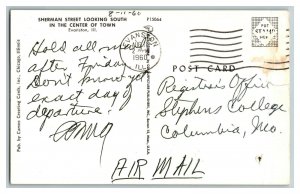 8-11-60
SHERMAN STREET LOOKING SOUTH
IN THE CENTER OF TOWN
Evanston, Ill.
P15064
Hold all mail
after Friday.
Don't know yet
exact day of
departure.
Pub. by Cameo Greeting Cards, Inc., Chicago, Illinois
EVANSTON
1960
ILL
POST CARD
Registrar's Office
Stephens College
Columbia, Mo.
AIR MAIL